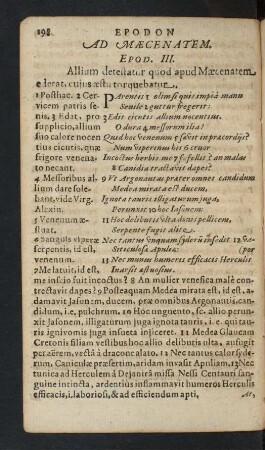 198 EPODON
AD MÆCENATEM.
EPOD. III.
Allium detestatur quod apud Mæcenatem
ederat, cuius æstu torquebatur.
1 Posthac. 2 Cer-
vicem patris se-
nis. 3 Edat, pro
supplicio, allium
suo calore nocen
tius cicuta, quæ
frigore venena-
to necant.
4 Messoribus al-
lium dare sole-
bant, vide Virg.
Alexin.
5 Venenum æ-
stuat.
6 sanguis viperæ
serpentis, id est,
venenum.
7 Me latuit, id est,
Parentis 1 olim si quis impia manu
Senile 2 guttur fregerit:
3 Edit cicutis allium nocentius.
O dura 4 messorum ilia!
Quid hoc veneni 5 sævit in præcordiis?
Num viperinus his 6 cruor
Incoctus herbis me 7 fefellit? an malas
8 Canidia tractavit dapes?
9 Ut Argonautas præter omnes candidum
Medea mirata est ducem,
Ignota tauris illigaturum juga,
Perunxit 10 hoc Iasonem:
11 Hoc delibutis ulta donis pellicem,
Serpente fugit alite.
Nec tantus unquam siderum insedit 12 va-
Siticulosæ Apuliæ: (por
13 Nec munus humeris efficacis Herculis
Inarsit æstuosius.
me jusso fuit incoctus? 8 An mulier venefica malè con-
trectavit dapes? 9 Posteaquam Medea mirata est, id est, a-
damavit Jasonem, ducem, præ omnibus Argonautis, candi-
dum, i. e. pulchrum, 10 Hoc unguento, sc. allio perun-
xit Jasonem, illigaturum juga ignota tauris, i. e. qui tau-
ris ignivomis juga insueta injiceret. 11 Medea Glaucam
Cretonis filiam vestibus hoc allio delibutis ulta, aufugit
per aërem, vectà à dracone alato. 12 Nec tantus calor syde-
rum, Caniculæ præsertim, aridam invasit Apuliam, 13 Nec tu-
nica ad Herculem à Dejanirâ missa Nessi Centauri san-
guine intincta, ardentius inflammavit humeros Herculis
efficacis, i. laboriosi, & ad efficiendum apti,